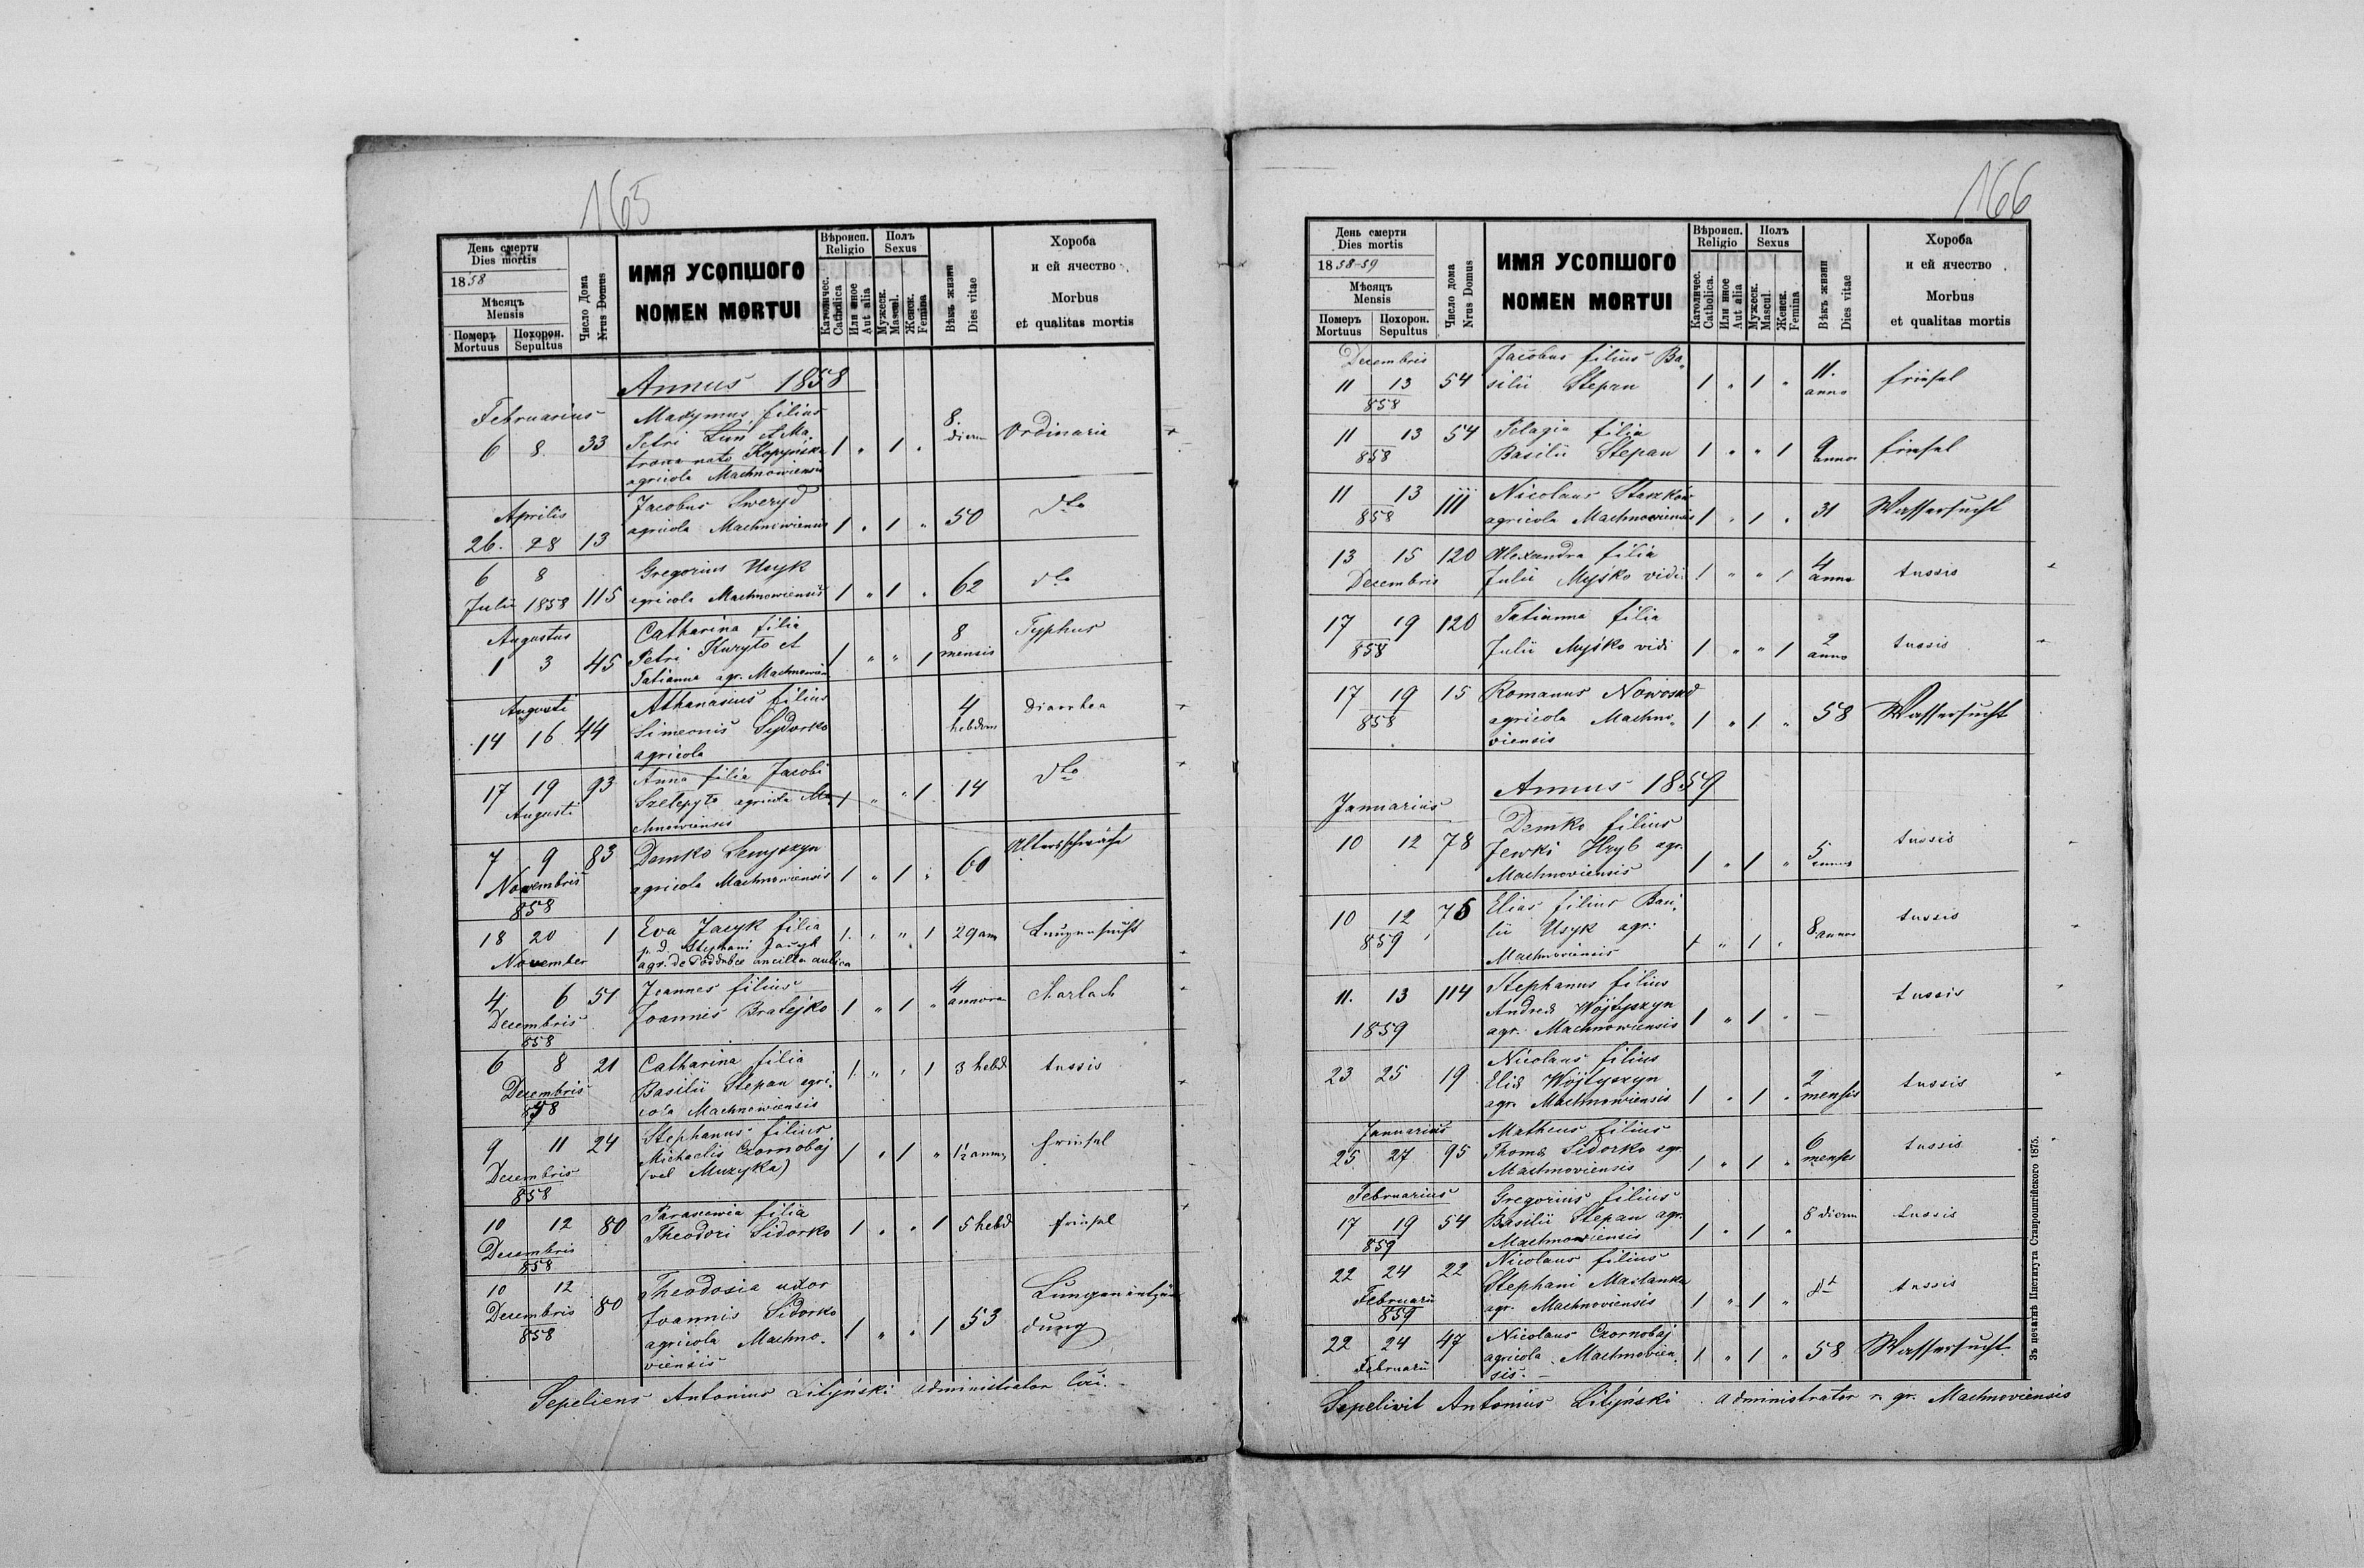 165
День смерти
Dies mortis
1858
Мѣсяцъ
Mensis
Померъ Похорон.
Mortuus Sepultus
Число Дома
Nrus Domus
ИМЯ УСОПШОГО
NOMEN MORTUI
Вѣроисп.
Religio
Католичес.
Catholica
Или иное
Aut alia
Полъ
Sexus
Мужеск.
Mascul.
Женск.
Femina
Вѣкъ жизни
Dies vitae
Хороба
и ей ячество
Morbus
et qualitas mortis
Annus 1858
Februarius Maxymus filius 8.
6 8. 33 Petri Luń et Ma 1 " 1 " dierum Ordinaria
trona nata Kopyńska
agricola Machnowiensis
Aprilis Jacobus Sweryd
26. 28 13 agricola Machnowiensis 1 " 1 " 50 dto
6 8 Gregorius Usyk
Julii 1858 115 agricola Machnowiensis 1 " 1 " 62 dto
Augustus Catharina filia 8
1 3 45 Petri Kuryto et 1 " " 1 mensis Typhus
Tatianna agr. Machnowien
Augusti Athanasius filius 4
14 16 44 Simeonis Sydorko hebdom Diarrhea
agricola
17 19 93 Anna filia Jacobi
Augusti Szelepyto agricola Ma 1 " " 1 14 dto
chnowiensis
7 9 83 Demko Semyszyn
Novembris agricola Machnowiensis 1 " 1 " 60 Altersschwäche
858
18 20 1 Eva Jasyk filia 1. " " 1 29 am Lungensucht
November p. d. Stephani Jasyk
agr. de Poddubce ancilla aulica
4 6 51 Joannes filius 4
Decembris Joannis Bratejko 1 " 1 " annorum Charlach
858
6 8 21 Catharina filia 1. " " 1 3 hebd tussis
Decembris Basilii Stepan agri-
858 cola Machnowiensis
9 11 24 Stephanus filius
Decembris Michaelis Czornobaj 1 " 1 " 1½ annus frinsel
858 (vel Muzyka)
10 12 80 Parascewia filia
Decembris Theodori Sidorko 1 " " 1 5 hebd frinsel
858
10 12 Theodosia uxor
Decembris 80 Joannis Sidorko Lungenentzün
858 agricola Machno- 1 " " 1 53 dung
viensis
Sepeliens Antonius Lityński administrator loci.
166
День смерти
Dies mortis
1858-59
Мѣсяцъ
Mensis
Померъ Похорон.
Mortuus Sepultus
Число дома
Nrus Domus
ИМЯ УСОПШОГО
NOMEN MORTUI
Вѣроисп.
Religio
Католичес.
Catholica.
Или иное
Aut alia
Полъ
Sexus
Мужеск.
Mascul.
Женск.
Femina
Вѣкъ жизни
Dies vitae
Хороба
и ей ячество
Morbus
et qualitas mortis
Decembris Jacobus filius Ba- 11.
11 13 54 silii Stepan 1 " 1 " anno frinsel
858
11 13 54 Pelagia filia 9
858 Basilii Stepan 1 " " 1 annor frinsel
11 13 111 Nicolaus Staszków
858 agricola Machnowiensis 1 " 1 " 31 Wassersucht
13 15 120 Alexandra filia 4
Decembris Julii Myśko vidi 1 " " 1 anno tussis
17 19 120 Tatianna filia 2
858 Julii Myśko vidi 1 " " 1 anno tussis
17 19 15 Romanus Nowosad
858 agricola Machno- 1 " 1 " 58 Wassersucht
viensis
Annus 1859
Januarius
10 12 78 Demko filius
Jewki Hryb agr. 1 " 1 " 5 annus tussis
Machnoviensis
10 12 75 Elias filius Basi-
859 lii Usyk agr. 1 " 1 " 8 annor tussis
Machnoviensis
11. 13 114 Stephanus filius
1859 Andreä Wójtyszyn 1 " 1 " — tussis
agr. Machnowiensis
23 25 19 Nicolaus filius 2
Eliä Wójtyszyn
agr. Machnowiensis 1 " 1 " mensis tussis
Januarius Matheus filius 6
25 27 95 Thomä Sidorko agr. 1 " 1 " mensis tussis
Machnoviensis
Februarius Gregorius filius
17 19 54 Basilii Stepan agr. 1 " 1 " 8 dierum tussis
859 Machnowiensis
22 24 22 Nicolaus filius
Februarii Stephani Maslanka
859 agr. Machnoviensis 1 " 1 " dt tussis
22 24 47 Nicolaus Czornobaj
Februarii agricola Machnovien- 1 " 1 " 58 Wassersucht
sis. —
Sepelivit Antonius Lityński administrator r. gr. Machnoviensis
Зъ печатнѣ Института Ставропигійского 1875.